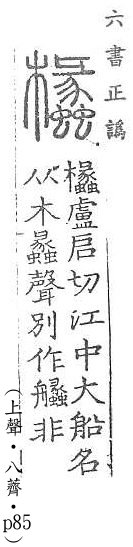 六書正譌
欚
欚盧启切江中大船名
从木蠡聲別作非
(上聲・八薺・p85)